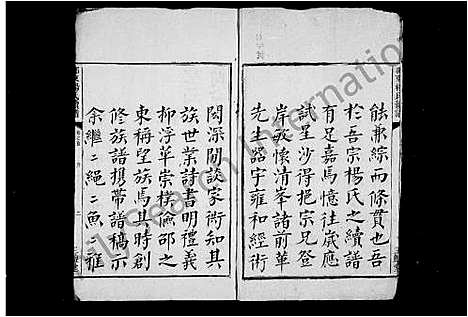 能兼綜而條貫也吾
於吾宗楊氏之續譜
有足嘉焉憶往歲應
試星沙得挹宗兄登
岸敬懷清峯諸前輩
先生器宇雍和經術
閎深閒談家術知其
族世業詩書明禮義
柳浮華崇樸儉邵之
東稱望族焉其時創
修族譜携帶譜稿示
余繼二繩二魚二雅